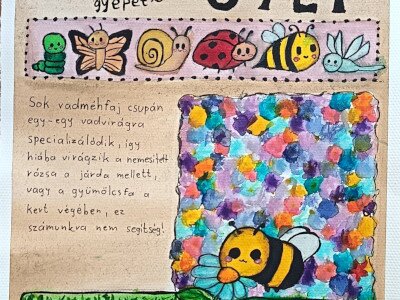 gyepet
Sok vadméhfaj csupán
egy-egy vadvirágra
specializálódik, így
hiába virágzik a nemesített
rózsa a járda mellett,
vagy a gyümölcsfa a
kert végében, ez
számunkra nem segítség!